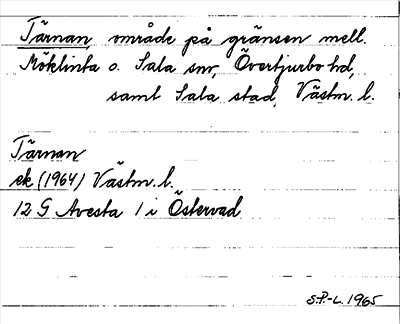 Tärnan, område på gränsen mell.
Möklinta o. Sala snr, Övertjurbo hd,
samt Sala stad, Västm. l.
Tärnan
ek (1964) Västm. l.
12 G Avesta 1 i Östervad
S.P.-L. 1965